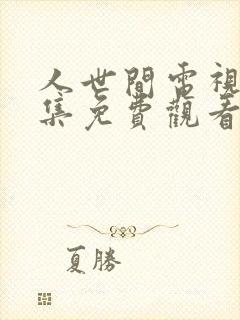 人世間電視
集免費觀看
夏勝